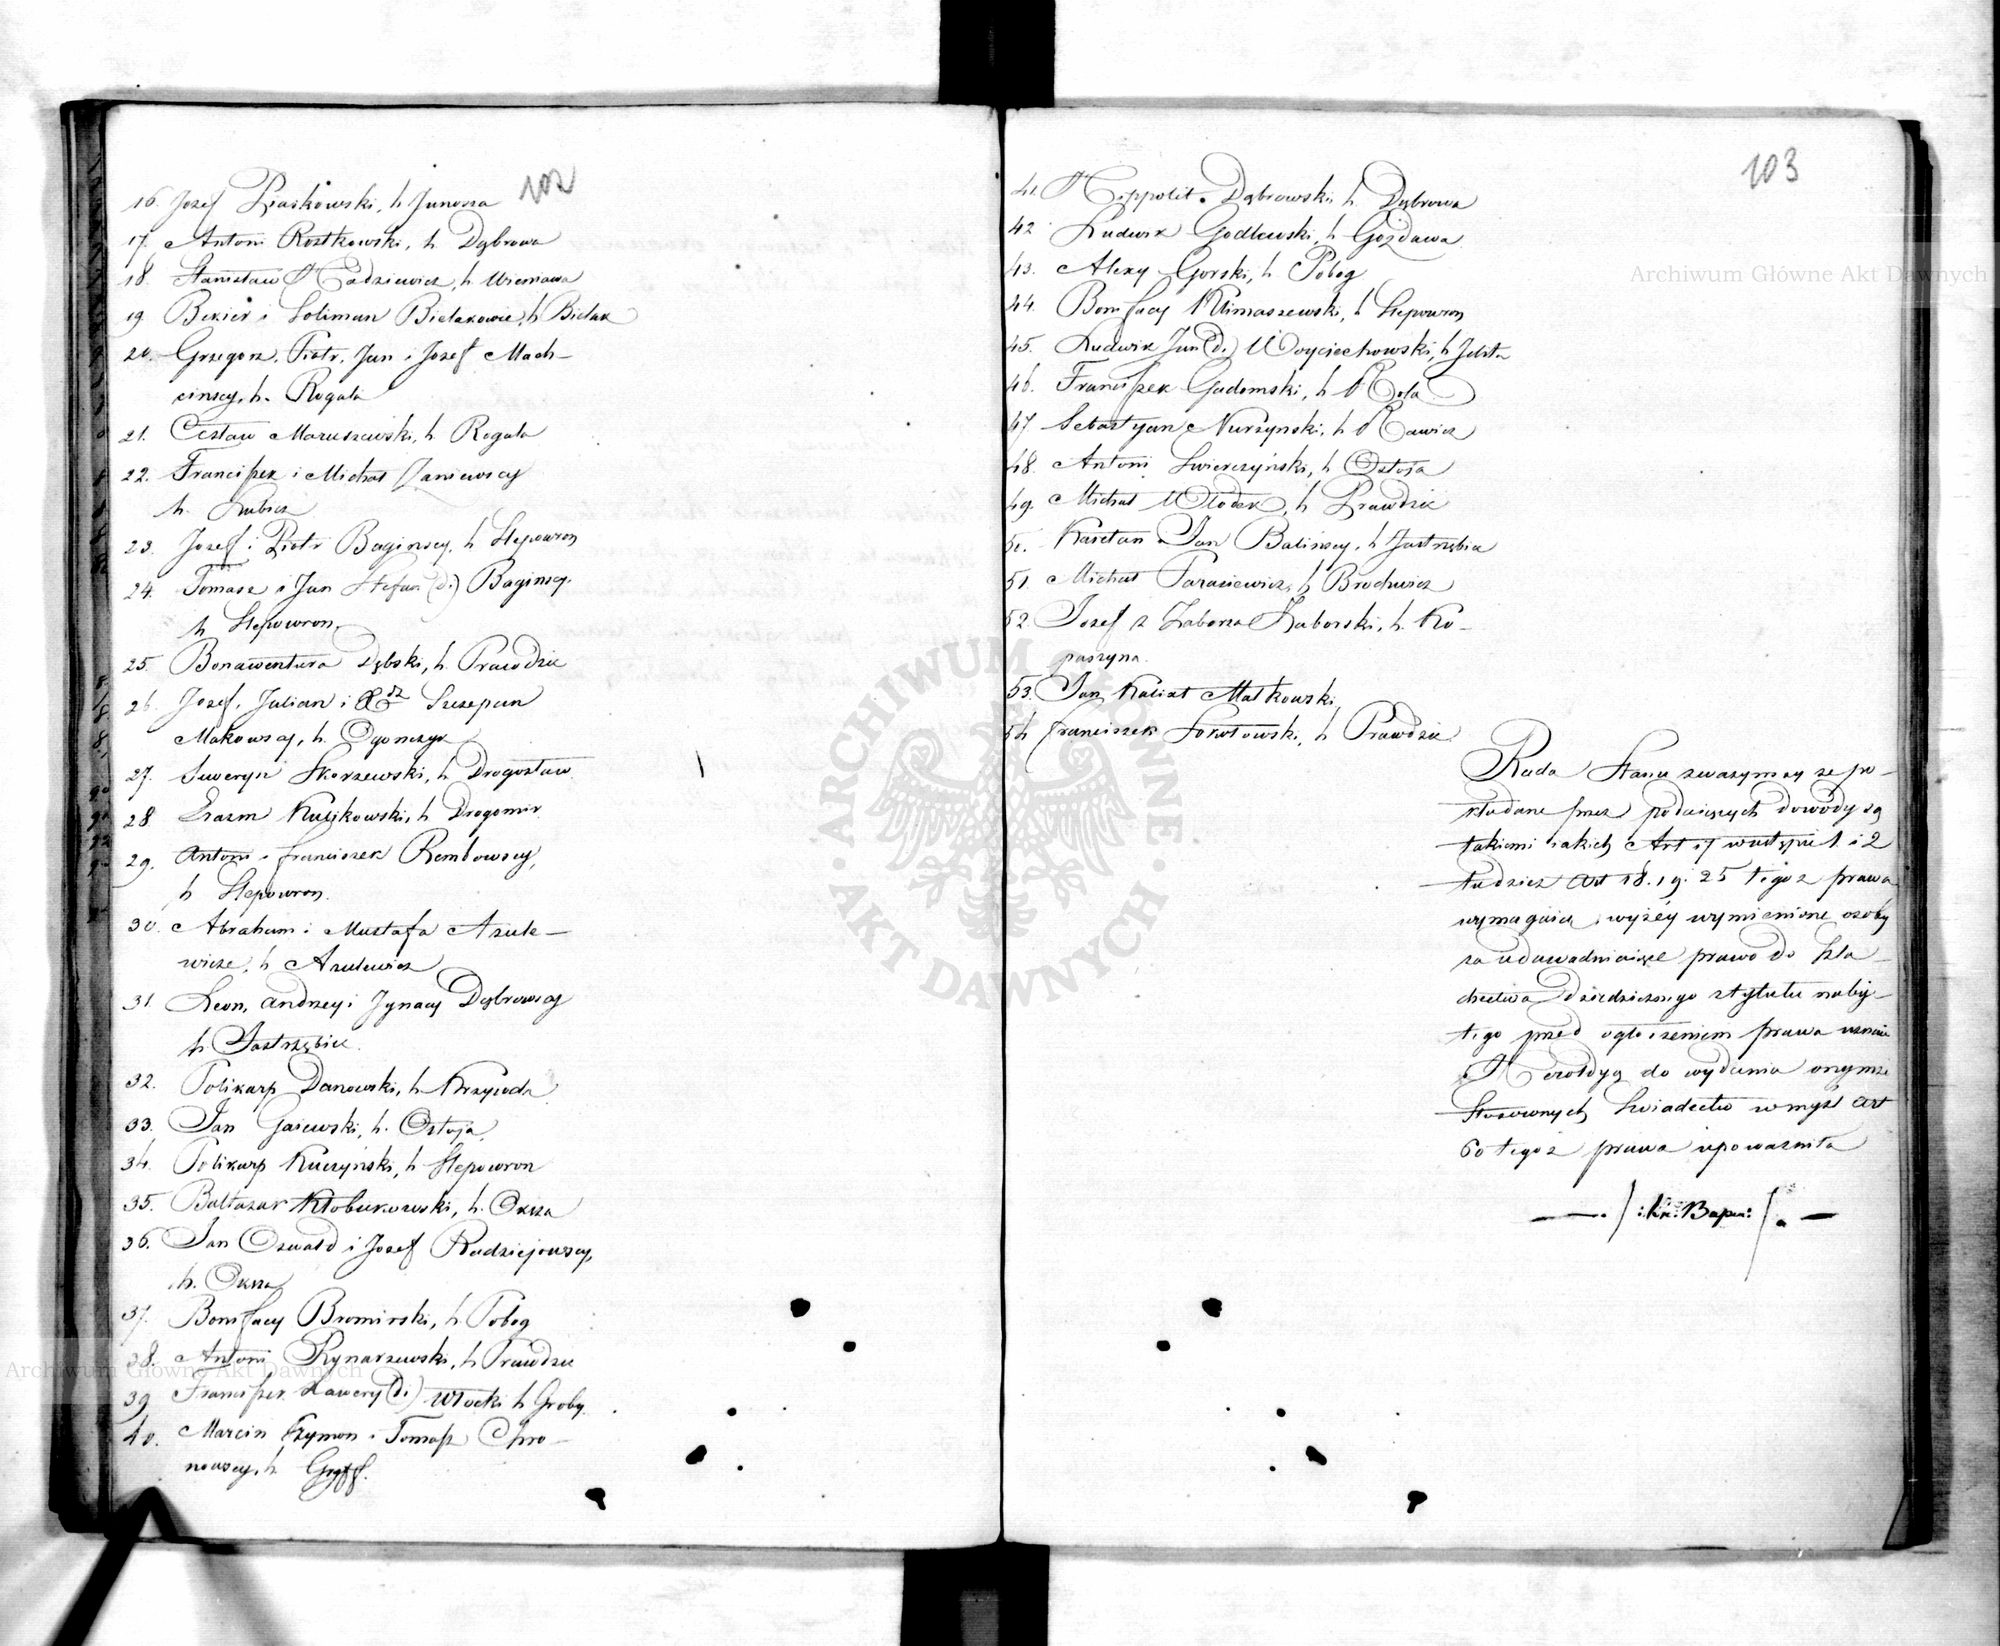 102
16. Jozef Piaskowski, h Junosza
17. Antoni Rostkowski, h. Dąbrowa
18. Stanisław Hadziewicz, h Wieniawa
19. Bekier i Soliman Bielakowie, h Bielak
20. Grzegorz, Piotr, Jan i Jozef Mach-
cinscy, h. Rogala
21. Cesław Maruszewski, h Rogala
22. Franciszek i Michał Zaniewscy
h. Lubicz
23. Jozef i Piotr Baginscy, h Slepowron
24. Tomasz i Jan Stefan (di.) Baginscy.
h Slepowron.
25. Bonawentura Dębski, h. Prawdzic
26. Jozef, Julian i Szczepan
Makowscy, h. Ogonczyk
27. Seweryn Skorzewski, h Drogosław
28. Erazm Kulikowski, h Drogomir
29. Antoni i franciszek Rembowscy,
h Slepowron.
30. Abraham i Mustafa Azule-
wicze, h Azulewicz
31. Leon, Andrzey i Jgnacy Dąbrowscy
h. Jastrzębiec.
32. Polikarp Danowski, h Krzywda
33. Jan Gaiewski, h. Ostoja.
34. Polikarp Kuczyński, h Slepowron
35. Baltazar Kłobukowski, h. Oksza
36. Jan Oswald i Jozef Radziejowscy,
h. Oksza
37. Bonifacy Bromirski, h. Pobog
38. Antoni Rynarzewski, h Prawdzic
39. Franciszek Xawery (di.) Włocki h Groby.
40. Marcin Szymon i Tomasz Chro-
nowscy, h. Gryff.
103
41. Hippolit Dąbrowski, h. Dąbrowa
42 Ludwik Godlewski, h Gozdawa
43. Alexy Gorski, h. Pobog
44. Bonifacy Klimaszewski, h Slepowron
45. Ludwik Jan (di.) Woyciechowski, h Jelita
46. Franciszek Gadomski, h Rola
47 Sebastyan Nurzynski, h. Rawicz
48. Antoni Swierczyński, h Ostoja
49. Michał Włodek, h Prawdzic
50. Kaietan i Jan Balinscy, h Jastrzębiec
51. Michał Parasiewicz, h Brochwicz
52. Jozef z Zaborza Zaborski, h. Ko-
paszyna.
53. Jan Kalixt Małkowski
54 franciszek Sokołowski, h Prawdzic
Rada Stanu zwazywszy ze po-
kładane przez podaiących dowody są
takiemi iakich Art 17 wustępie 1. i 2
tudziez Art 18. 19. 25 tegoz prawa
wymagaią, wyżey wymienione osoby
za udawadniaiące prawo do szla-
chectwa dziedzicznego z tytułu naby-
tego przed ogłoszeniem prawa uznaie
i Heroldyą do wydania onymze
stosownych swiadectw w mysl Art
60 tegoz prawa upowazniła
Archiwum Główne Akt Dawnych
Archiwum Główne Akt Dawnych
ARCHIWUM GŁÓWNE
AKT DAWNYCH